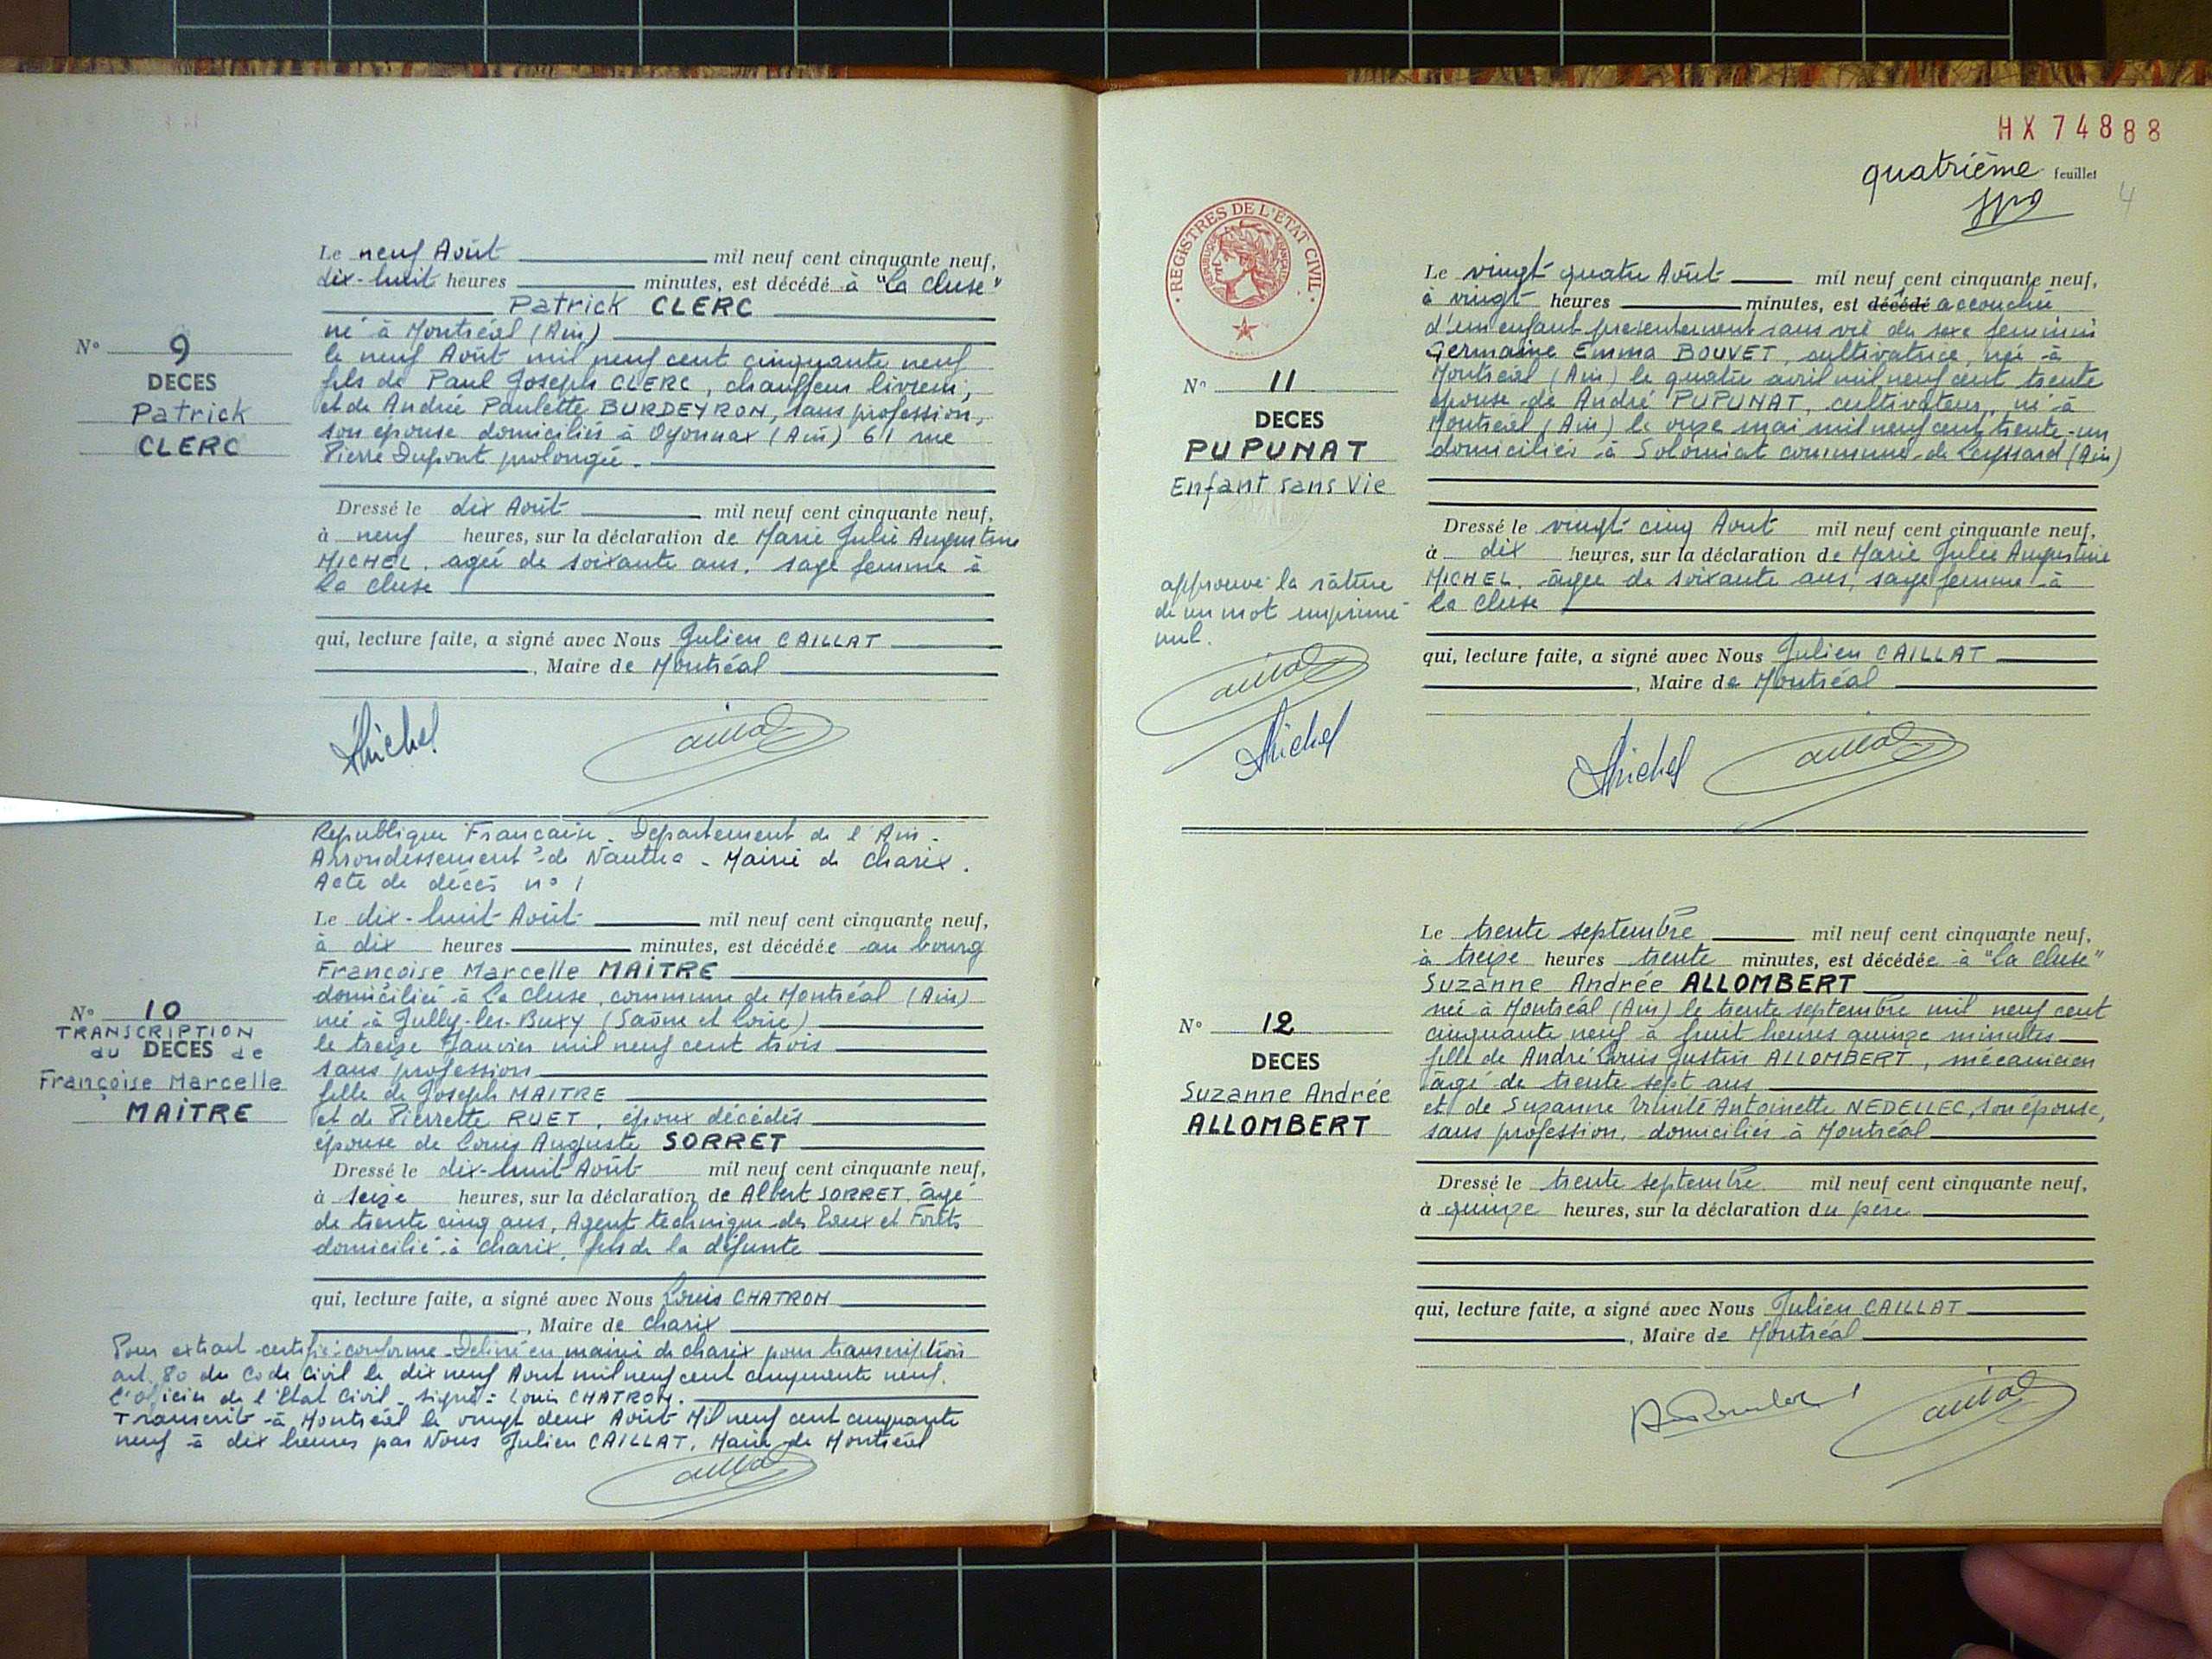 Le neuf Août mil neuf cent cinquante neuf,
dix-huit heures minutes, est décédé à "La Cluse"
Patrick CLERC
né à Montréal (Ain)
le neuf Août mil neuf cent cinquante neuf
fils de Paul Joseph CLERC, chauffeur livreur,
et de Andrée Paulette BURDEYRON, sans profession,
son épouse domiciliés à Oyonnax (Ain) 61 rue
Pierre Dupont prolongée.
N° 9
DECES
Patrick
CLERC
Dressé le dix Août mil neuf cent cinquante neuf,
à neuf heures, sur la déclaration de Marie Julie Augustine
MICHEL, agée de soixante ans, sage femme à
La Cluse
qui, lecture faite, a signé avec Nous Julien CAILLAT
, Maire de Montréal
Michel
Republique Française - Département de l'Ain -
Arrondissement de Nantua - Mairie de Charix.
Acte de décès n° 1
Le dix-huit Août mil neuf cent cinquante neuf,
à dix heures minutes, est décédée au bourg
Françoise Marcelle MAITRE
domiciliée à La Cluse, commune de Montréal (Ain)
née à Jully-les-Buxy (Saône et Loire)
le treize Janvier mil neuf cent trois
sans profession
fille de Joseph MAITRE
et de Pierrette RUET, époux décédés
épouse de Louis Auguste SORRET
N° 10
TRANSCRIPTION
du DECES de
Françoise Marcelle
MAITRE
Dressé le dix-huit Août mil neuf cent cinquante neuf,
à seize heures, sur la déclaration de Albert SORRET, âgé
de trente cinq ans, Agent technique des Eaux et Forêts
domicilié à Charix, fils de la défunte
qui, lecture faite, a signé avec Nous Louis CHATRON
, Maire de Charix
Pour extrait certifié conforme Délivré en mairie de Charix pour transcription
art. 80 du Code Civil le dix neuf Aout mil neuf cent cinquante neuf.
L'Officier de l'Etat Civil - signé : Louis CHATRON.
Transcrit à Montréal le vingt deux Août Mil neuf cent cinquante
neuf à dix heures par Nous Julien CAILLAT, Maire de Montréal
HX 74888
quatrième feuillet
4
REGISTRES DE L'ETAT CIVIL
REPUBLIQUE FRANÇAISE
Le vingt quatre Août mil neuf cent cinquante neuf,
à vingt heures minutes, est décédé accouchée
d'un enfant presentement sans vie du sexe feminin
Germaine Emma BOUVET, cultivatrice, née à
Montréal (Ain) le quatre avril mil neuf cent trente
épouse de André PUPUNAT, cultivateur, né à
Montréal (Ain) le onze mai mil neuf cent trente-un
domiciliés à Solomiat commune de Leyssard (Ain)
N° 11
DECES
PUPUNAT
Enfant sans Vie
Dressé le vingt cinq Aout mil neuf cent cinquante neuf,
à dix heures, sur la déclaration de Marie Julie Augustine
MICHEL, âgée de soixante ans, sage femme à
La Cluse
approuvé la râture
de un mot imprimé
nul.
Michel
qui, lecture faite, a signé avec Nous Julien CAILLAT
, Maire de Montréal
Michel
Le trente septembre mil neuf cent cinquante neuf,
à treize heures trente minutes, est décédée à "La Cluse"
Suzanne Andrée ALLOMBERT
née à Montréal (Ain) le trente septembre mil neuf cent
cinquante neuf à huit heures quinze minutes
fille de André Louis Justin ALLOMBERT, mécanicien
âgé de trente sept ans
et de Suzanne Antoinette NEDELLEC, son épouse,
sans profession, domiciliés à Montréal
N° 12
DECES
Suzanne Andrée
ALLOMBERT
Dressé le trente septembre mil neuf cent cinquante neuf,
à quinze heures, sur la déclaration du père
qui, lecture faite, a signé avec Nous Julien CAILLAT
, Maire de Montréal